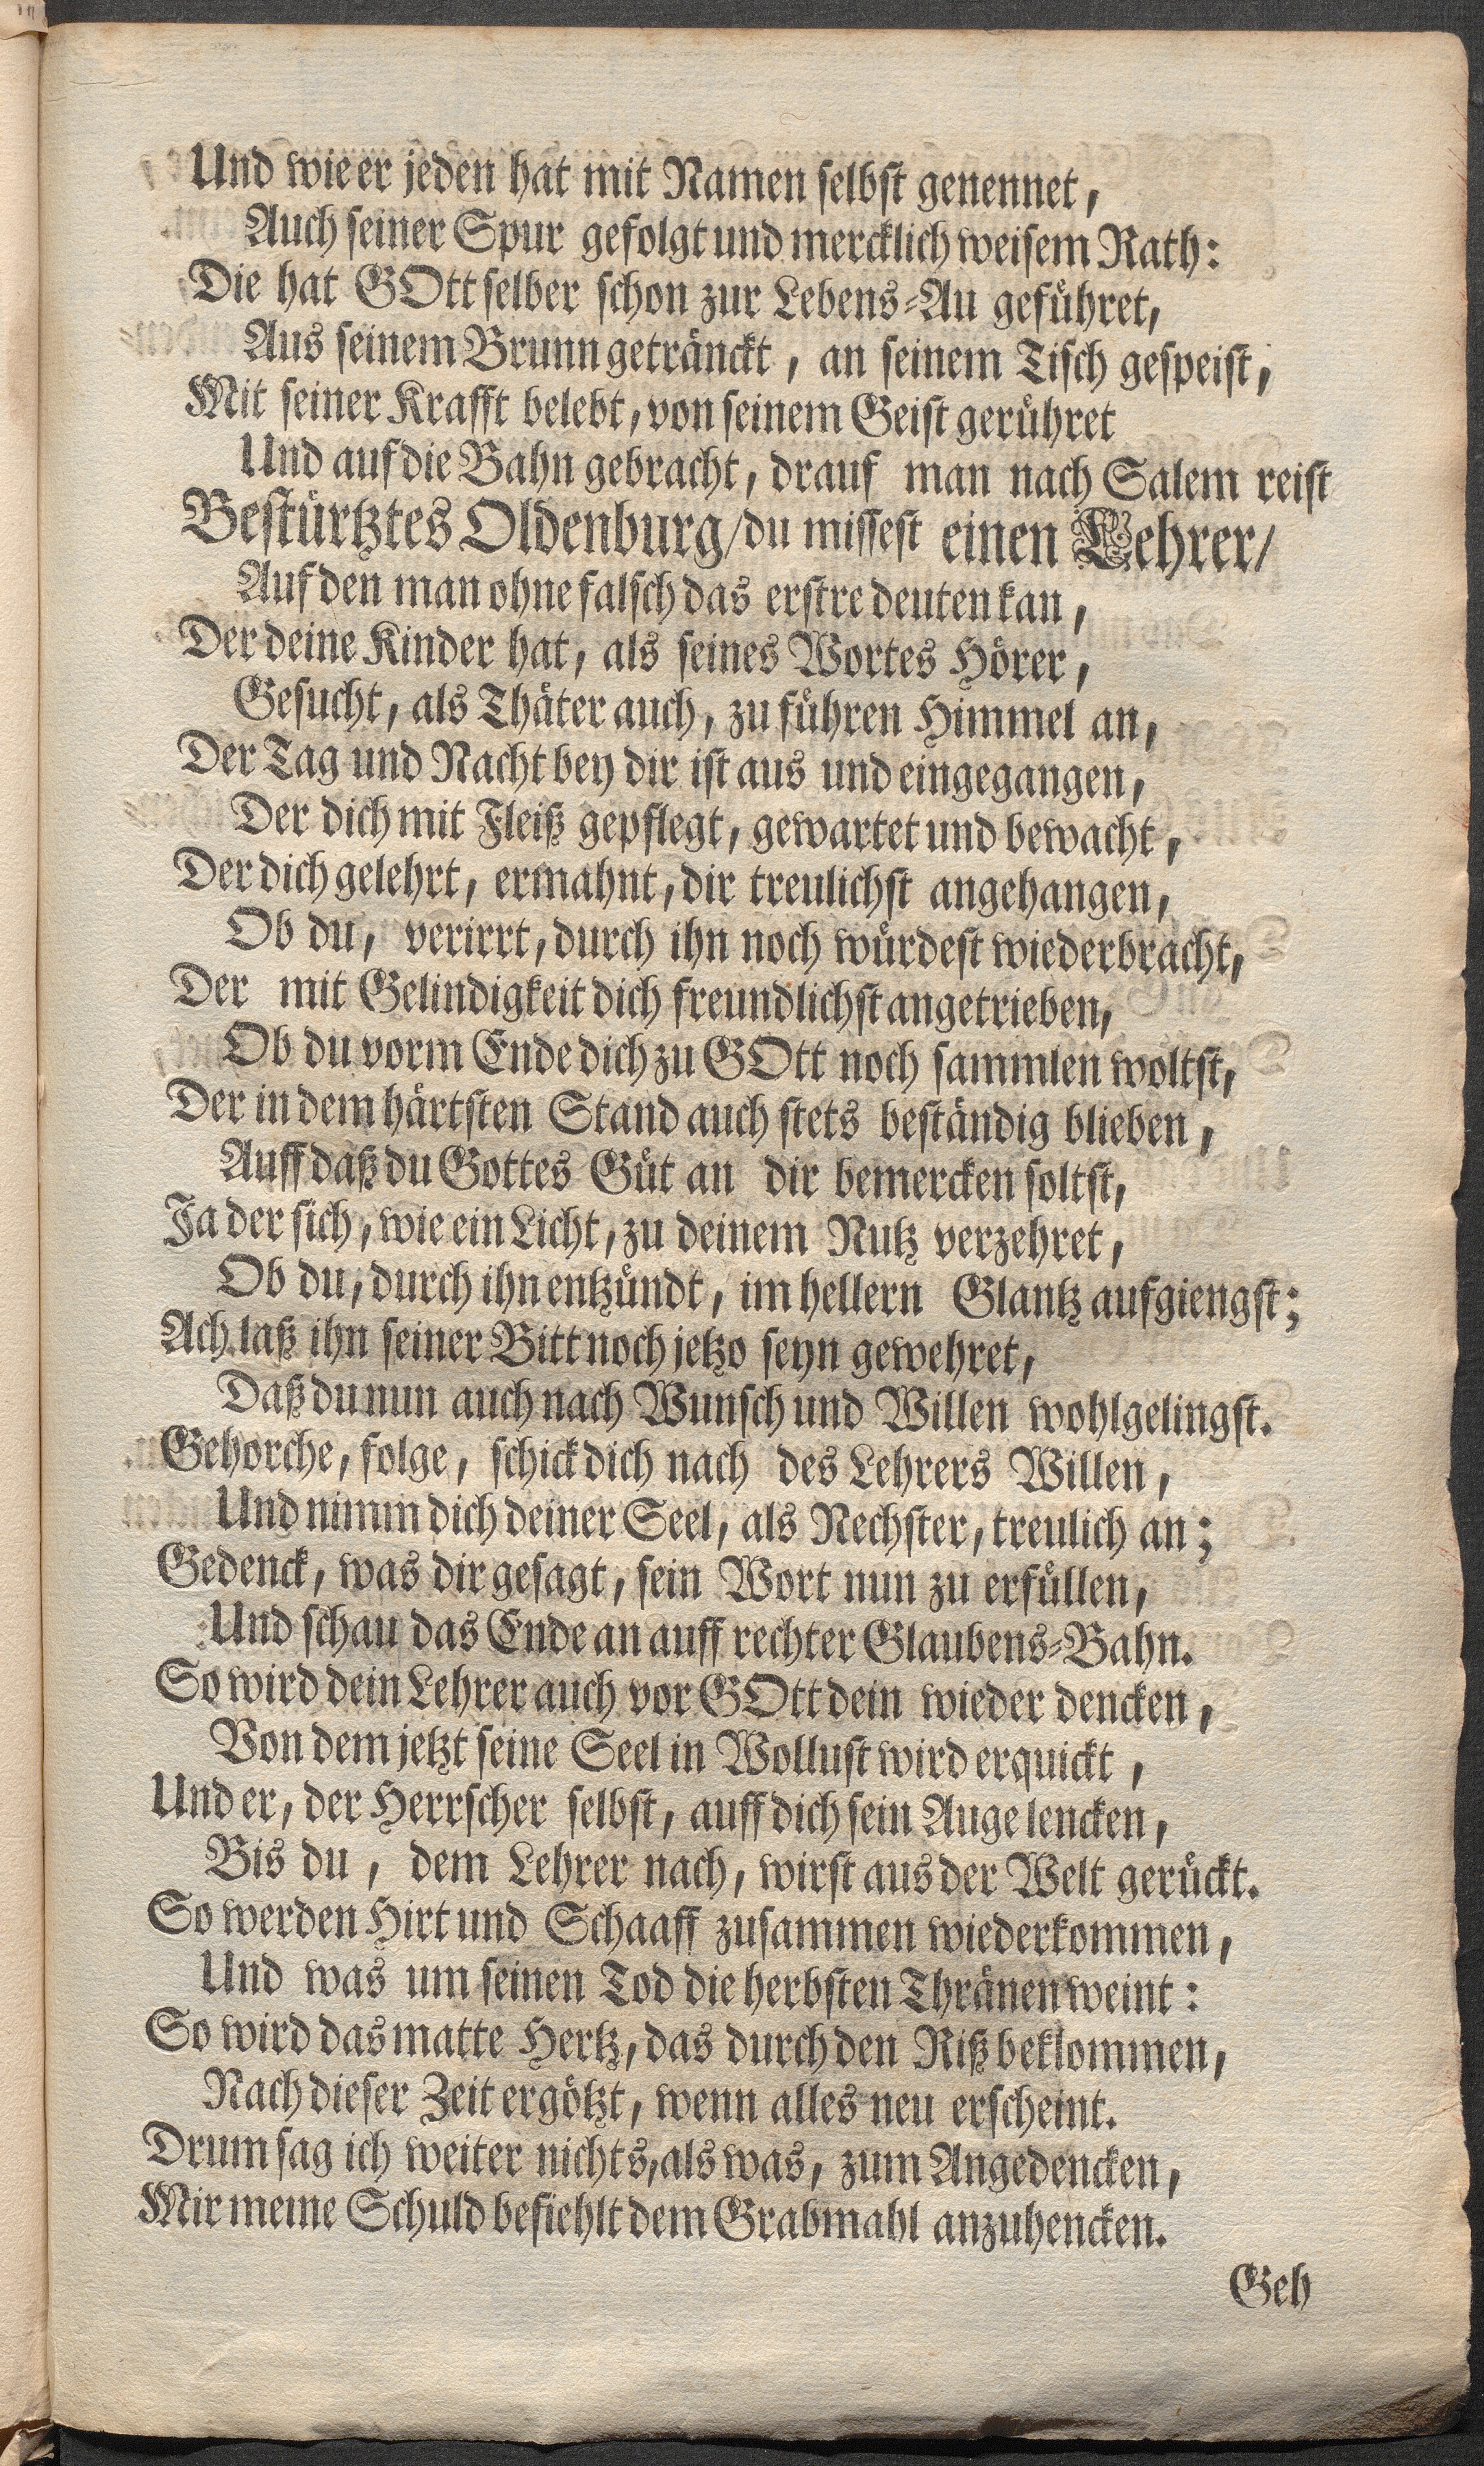 Und wie er jeden hat mit Namen selbst genennet,
Auch seiner Spur gefolgt und mercklich weisem Rath:
Die hat GOtt selber schon zur Lebens-Au geführet,
Aus seinem Brunn getränckt, an seinem Tisch gespeist,
Mit seiner Krafft belebt, von seinem Geist gerühret
Und auf die Bahn gebracht, drauf man nach Salem reist
Bestürtztes Oldenburg/ du missest einen Lehrer/
Auf den man ohne falsch das erstre deuten kan,
Der deine Kinder hat, als seines Wortes Hörer,
Gesucht, als Thäter auch, zu führen Himmel an,
Der Tag und Nacht bey dir ist aus und eingegangen,
Der dich mit Fleiß gepflegt, gewartet und bewacht,
Der dich gelehrt, ermahnt, dir treulichst angehangen,
Ob du, verirrt, durch ihn noch würdest wiederbracht,
Der mit Gelindigkeit dich freundlichst angetrieben,
Ob du vorm Ende dich zu GOtt noch sammlen woltst,
Der in dem härtsten Stand auch stets beständig blieben,
Auff daß du Gottes Güt an dir bemercken soltst,
Ja der sich, wie ein Licht, zu deinem Nutz verzehret,
Ob du, durch ihn entzündt, im hellern Glantz aufgiengst;
Ach laß ihn seiner Bitt noch jetzo seyn gewehret,
Daß du nun auch nach Wunsch und Willen wohlgelingst.
Gehorche, folge, schick dich nach des Lehrers Willen,
Und nimm dich deiner Seel, als Nechster, treulich an;
Gedenck, was dir gesagt, sein Wort nun zu erfüllen,
Und schau das Ende an auff rechter Glaubens-Bahn.
So wird dein Lehrer auch vor GOtt dein wieder dencken,
Von dem jetzt seine Seel in Wollust wird erquickt,
Und er, der Herrscher selbst, auff dich sein Auge lencken,
Bis du, dem Lehrer nach, wirst aus der Welt gerückt.
So werden Hirt und Schaaff zusammen wiederkommen,
Und was um seinen Tod die herbsten Thränen weint:
So wird das matte Hertz, das durch den Riß beklommen,
Nach dieser Zeit ergötzt, wenn alles neu erscheint.
Drum sag ich weiter nichts, als was, zum Angedencken,
Mir meine Schuld befiehlt dem Grabmahl anzuhencken.
Geh